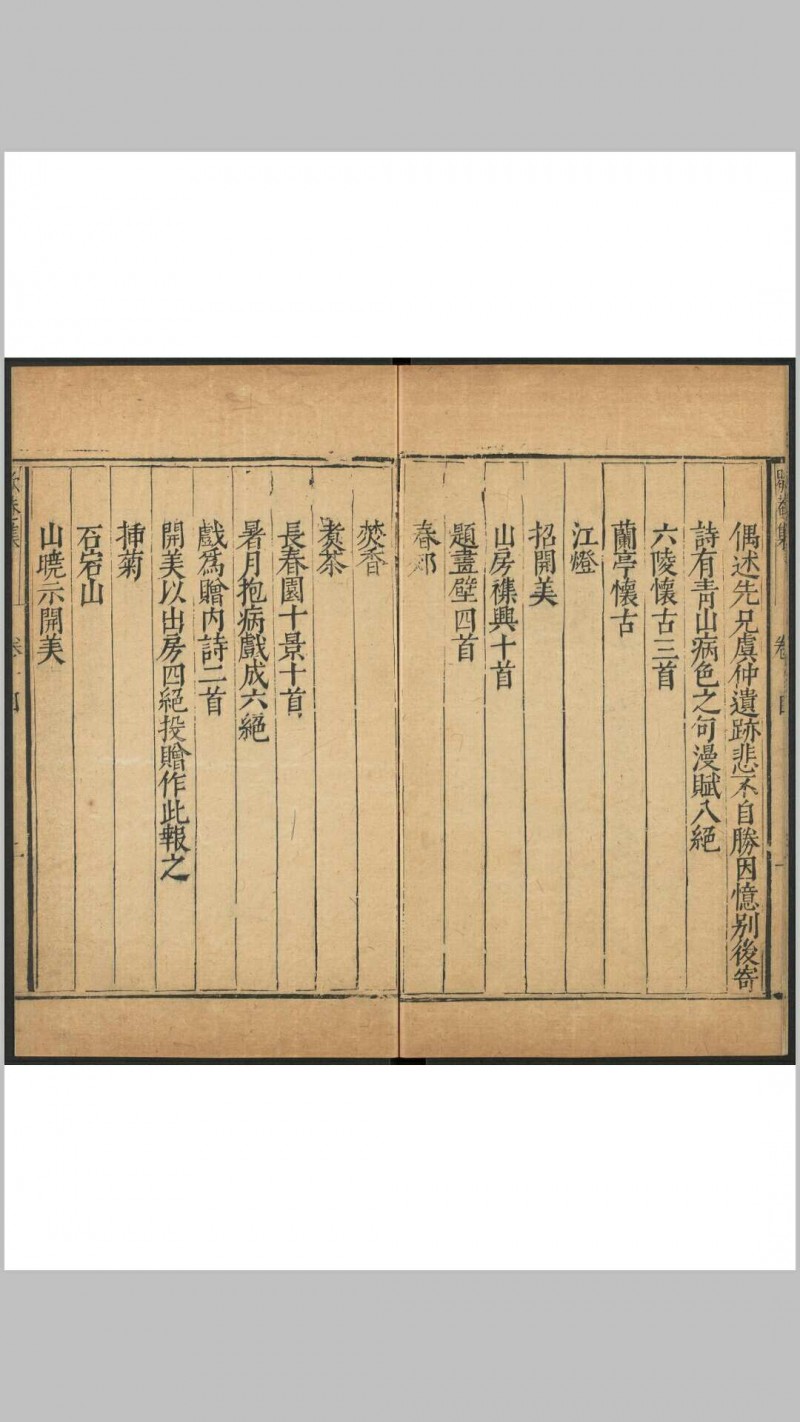 偶述先兄虞仲遺跡悲不自勝因憶別後寄
詩有青山病色之句漫賦八絕
六陵懷古三首
蘭亭懷古
江燈
招開美
山房襍興十首
題畫壁四首
春郊
焚香
煑茶
長春園十景十首
暑月抱病戲成六絕
戲爲贈内詩二首
開美以出房四絕投贈作此報之
揷菊
石宕山
山曉示開美